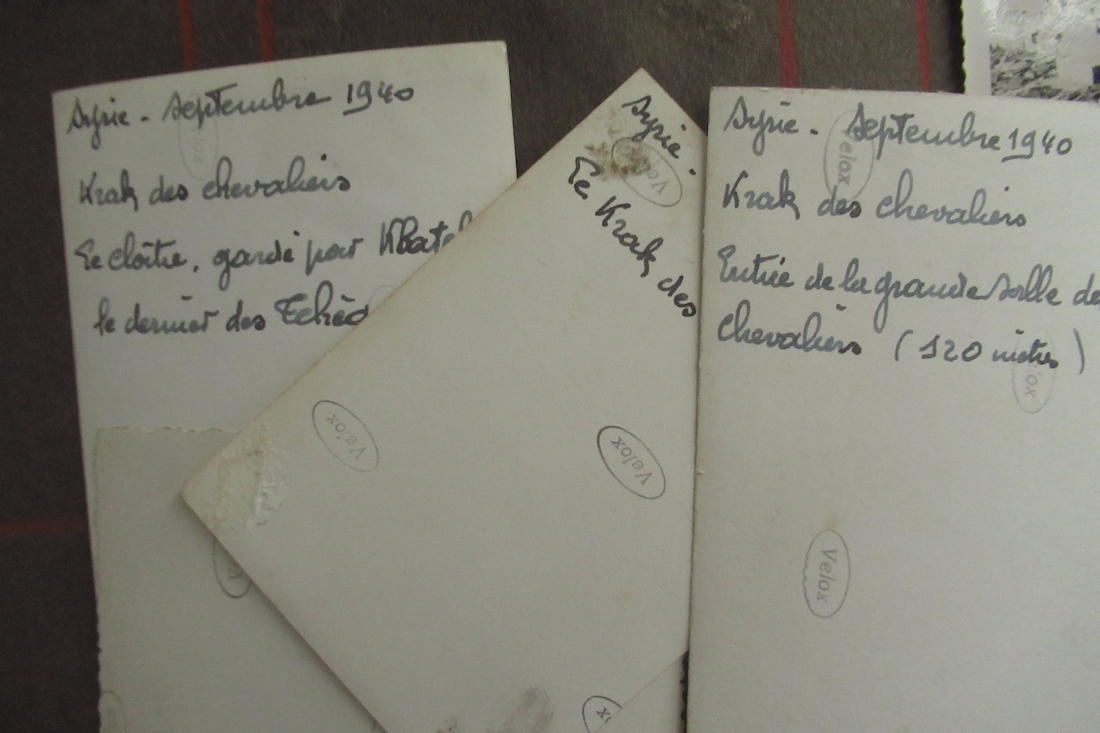 Syrie - septembre 1940
Krak des chevaliers
Le cloître, gardé par
le dernier des
Velox
Syrie.
Le Krak des
Velox
Velox
Velox
Syrie - Septembre 1940
Krak des chevaliers
Entrée de la grande salle
chevaliers (120 mètres)
Velox
Velox